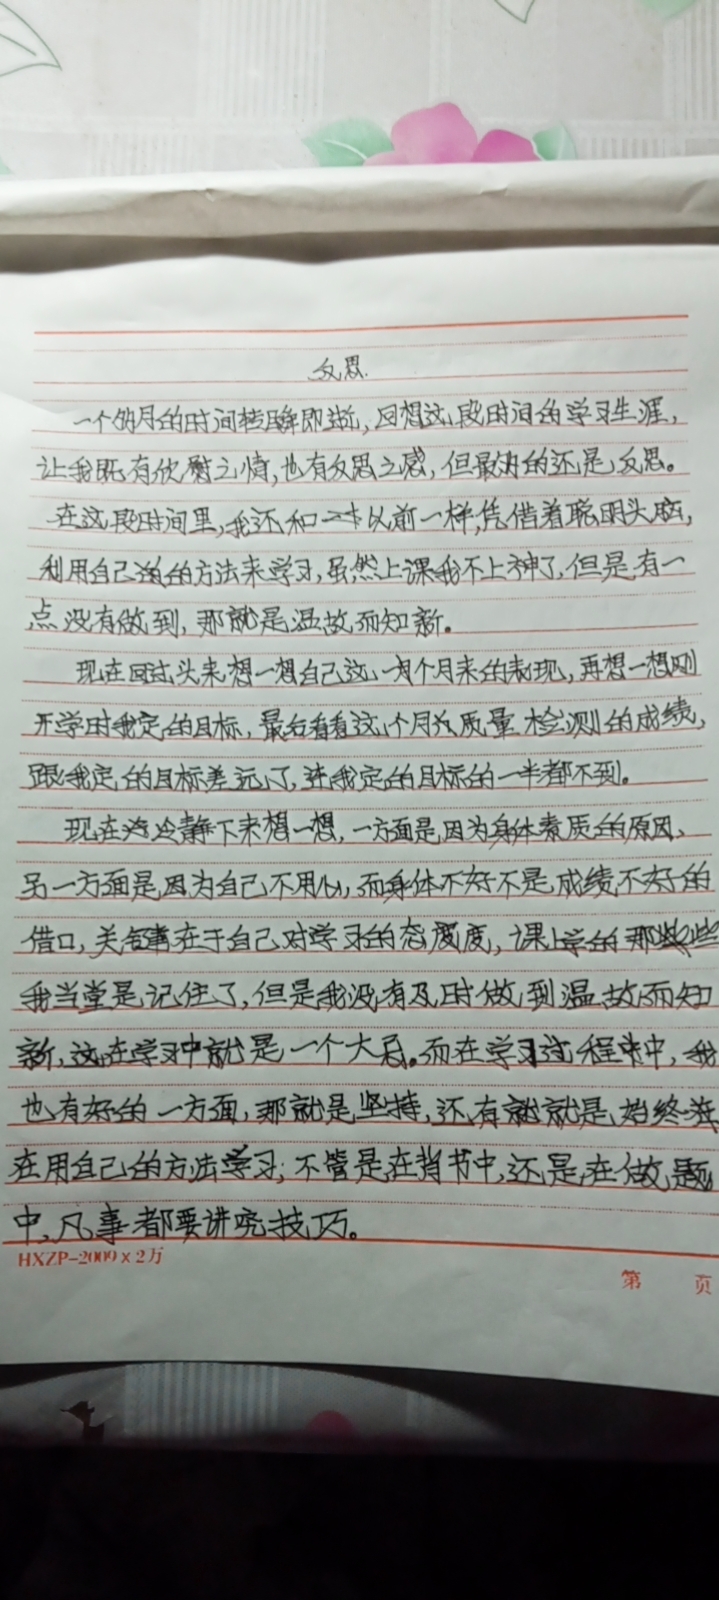 反思
一个月的时间转瞬即逝,回想这段时间的学习生涯,
让我既有欣慰之情,也有反思之感,但最多的还是反思。
在这段时间里,我还和以前一样,凭借着聪明头脑,
利用自己的方法来学习,虽然上课我不上神了,但是有一
点没有做到,那就是温故而知新。
现在回过头来想一想自己这一个月来的表现,再想一想刚
开学时我定的目标,最后看看这个月次质量检测的成绩,
跟我定的目标差远了,连我定的目标的一半都不到。
现在冷静下来想一想,一方面是因为身体素质的原因、
另一方面是因为自己不用心,而身体不好不是成绩不好的
借口,关键在于自己对学习的态度,课上学的那些
我当堂是记住了,但是我没有及时做到温故而知
新,这在学习中就是一个大忌。而在学习过程中,我
也有好的一方面,那就是坚持,还有就是,始终
在用自己的方法学习;不管是在背书中,还是在做题
中,凡事都要讲究技巧。
HXZP-2009×2万
第 页